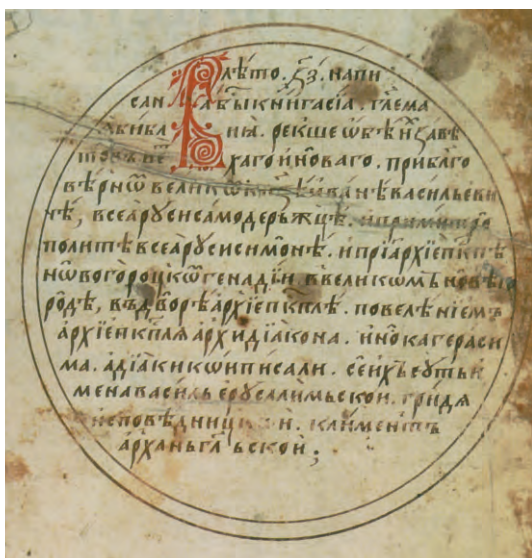 В лѣ́то ҂зз҃. напи
санà бы́ книга сіа̀. гл҃ема
а̀ би́бліа. рекше ѡбѣи́х завѣ
товъ ве́тхаго и но́ваго. при бл҃го
вѣ́рнѡм великѡм кн҃зѣ и҆ва́нѣ васильеви
чѣ, всеа̀ рꙋси самодерьжцѣ. и при митро
политѣ всеа̀ рꙋси си́монѣ. и при а҆рхіе҆пкⷭ҇пѣ
нѡвогоро́цкѡм гена́дїи. в великѡмъ но́вѣго
ро́дѣ, въ дво́рѣ а҆рхіе҆пкⷭ҇плѣ. повелѣ́ніемъ
а҆рхіе҆пкⷭ҇пля а҆рхидїа́кона. и҆нѡка герaси
ма. а дїа́ки кѡи писали. се и҆́хъ
мена василь е҆рꙋсали́мьскои. гри́дя
и҆сповѣ́дницкои. климе́нтъ
а҆рха́ньгльскои;